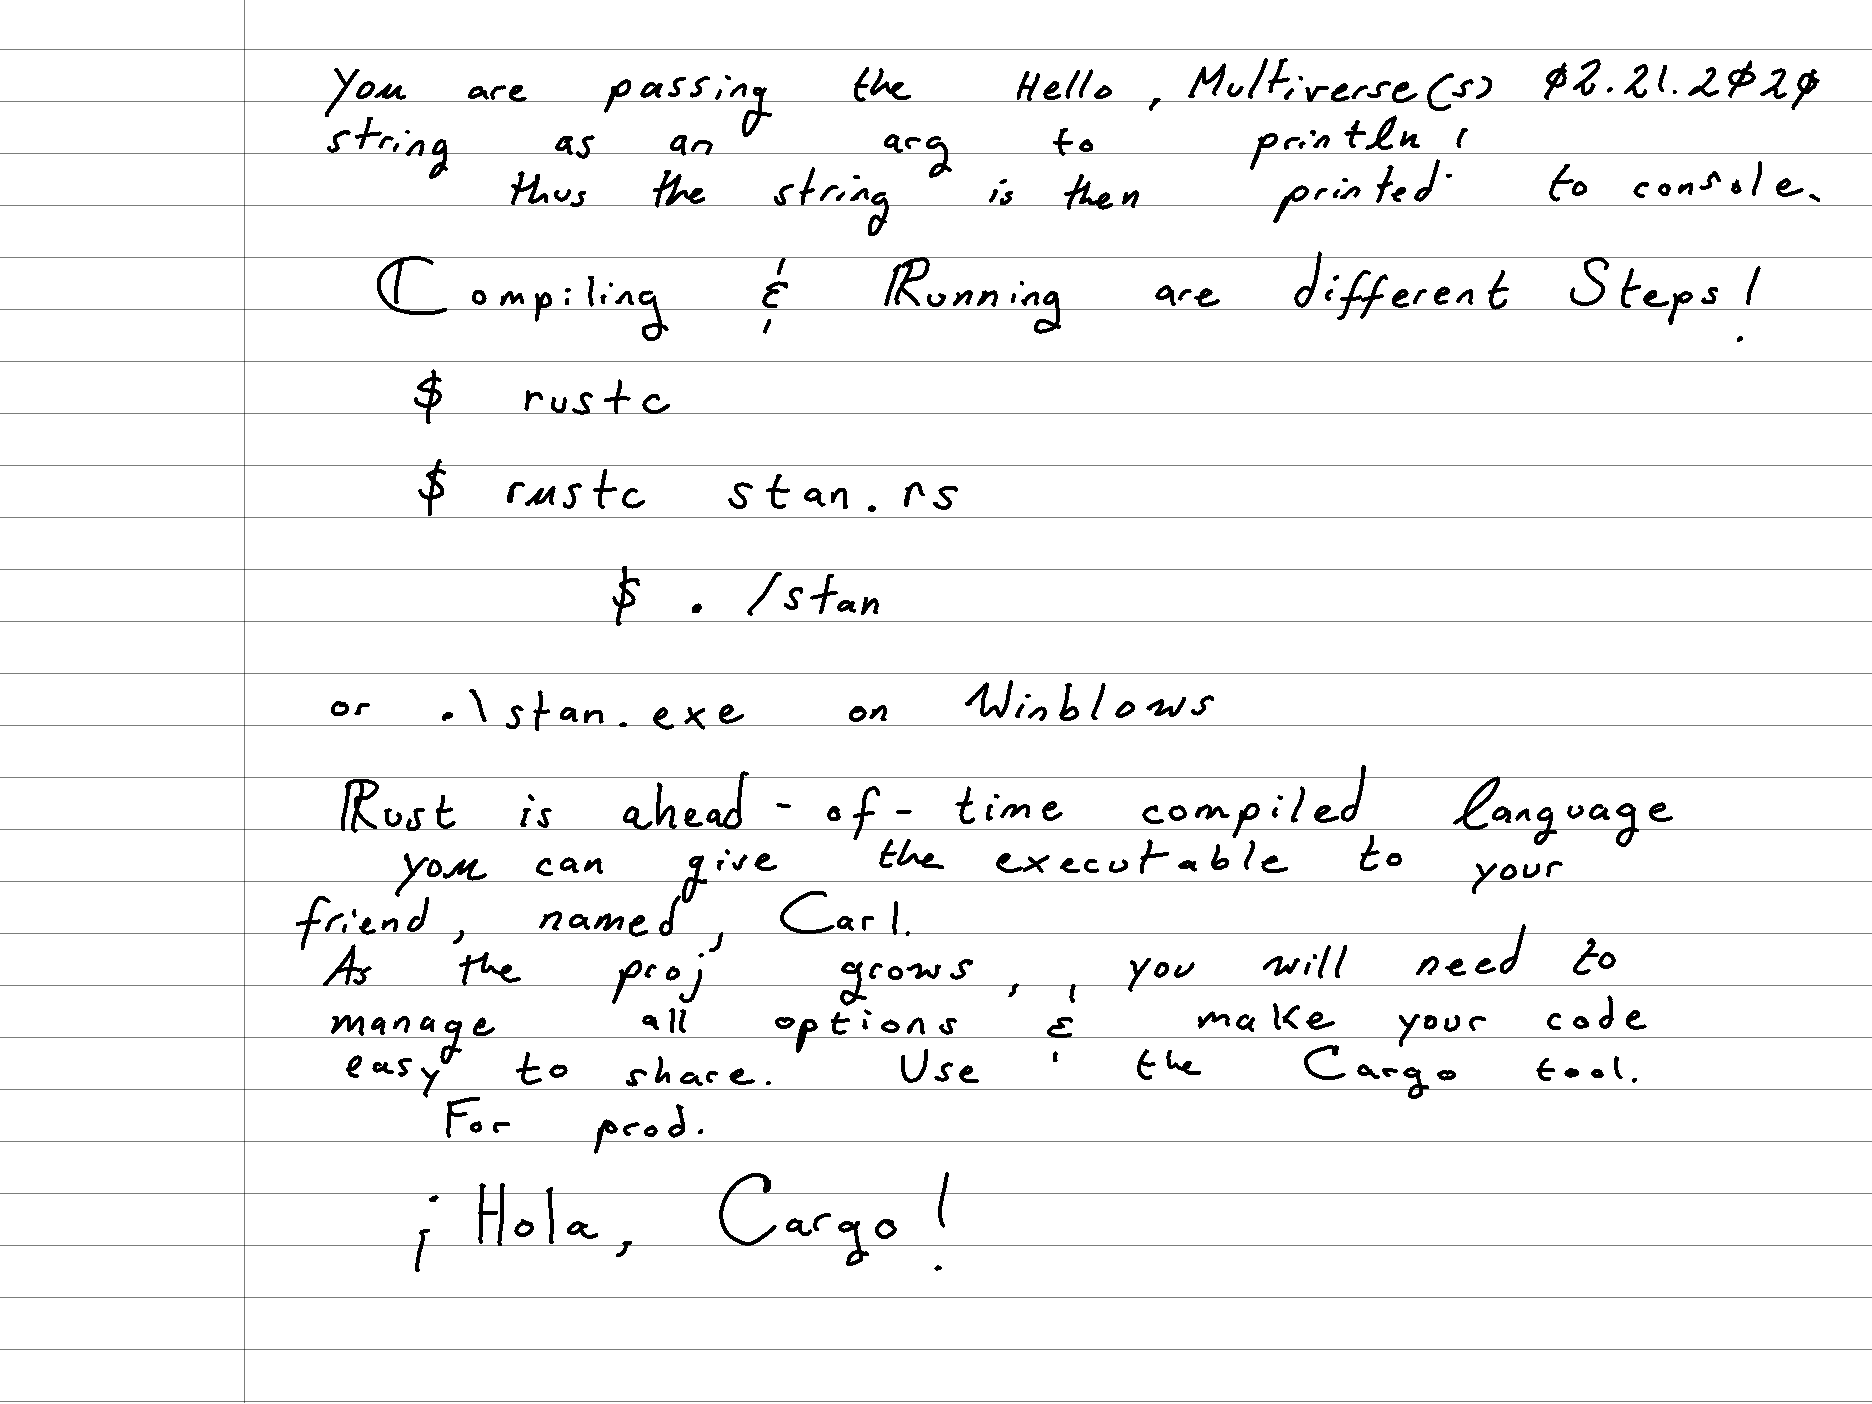 You are passing the Hello, Multiverse(s) 02.21.2020
string as an arg to println!
thus the string is then printed to console.
Compiling & Running are different Steps!
$ rustc
$ rustc stan.rs
$ ./stan
or .\stan.exe on Winblows
Rust is ahead-of-time compiled language
you can give the executable to your
friend, named, Carl.
As the proj grows, you will need to
manage all options & make your code
easy to share. Use the Cargo tool.
For prod.
¡Hola, Cargo!